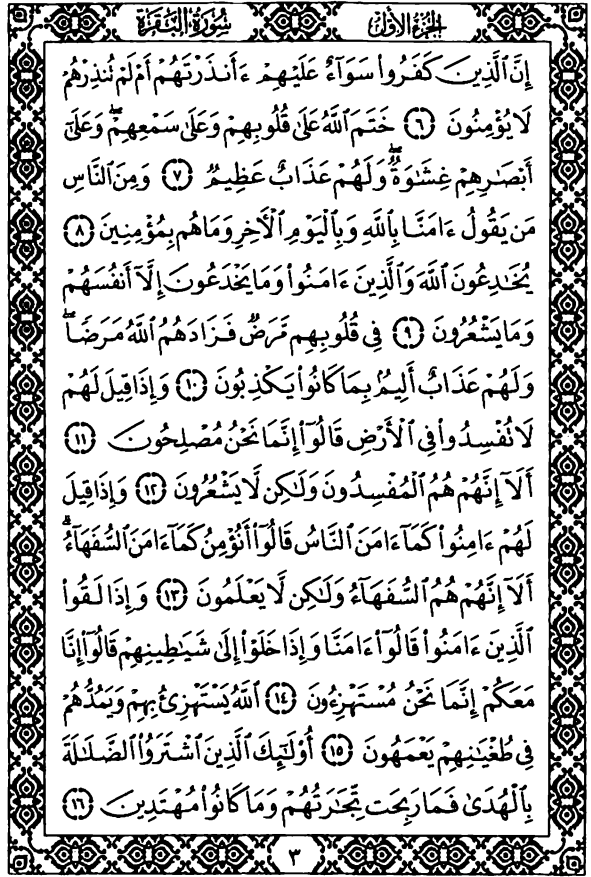 الجزء الأول
سورة البقرة
إِنَّ ٱلَّذِينَ كَفَرُوا۟ سَوَآءٌ عَلَيْهِمْ ءَأَنذَرْتَهُمْ أَمْ لَمْ تُنذِرْهُمْ
لَا يُؤْمِنُونَ ﴿٦﴾ خَتَمَ ٱللَّهُ عَلَىٰ قُلُوبِهِمْ وَعَلَىٰ سَمْعِهِمْ ۖ وَعَلَىٰٓ
أَبْصَـٰرِهِمْ غِشَـٰوَةٌ ۖ وَلَهُمْ عَذَابٌ عَظِيمٌ ﴿٧﴾ وَمِنَ ٱلنَّاسِ
مَن يَقُولُ ءَامَنَّا بِٱللَّهِ وَبِٱلْيَوْمِ ٱلْـَٔاخِرِ وَمَا هُم بِمُؤْمِنِينَ ﴿٨﴾
يُخَـٰدِعُونَ ٱللَّهَ وَٱلَّذِينَ ءَامَنُوا۟ وَمَا يَخْدَعُونَ إِلَّآ أَنفُسَهُمْ
وَمَا يَشْعُرُونَ ﴿٩﴾ فِى قُلُوبِهِم مَّرَضٌ فَزَادَهُمُ ٱللَّهُ مَرَضًا ۖ
وَلَهُمْ عَذَابٌ أَلِيمٌۢ بِمَا كَانُوا۟ يَكْذِبُونَ ﴿١٠﴾ وَإِذَا قِيلَ لَهُمْ
لَا تُفْسِدُوا۟ فِى ٱلْأَرْضِ قَالُوٓا۟ إِنَّمَا نَحْنُ مُصْلِحُونَ ﴿١١﴾
أَلَآ إِنَّهُمْ هُمُ ٱلْمُفْسِدُونَ وَلَـٰكِن لَّا يَشْعُرُونَ ﴿١٢﴾ وَإِذَا قِيلَ
لَهُمْ ءَامِنُوا۟ كَمَآ ءَامَنَ ٱلنَّاسُ قَالُوٓا۟ أَنُؤْمِنُ كَمَآ ءَامَنَ ٱلسُّفَهَآءُ ۗ
أَلَآ إِنَّهُمْ هُمُ ٱلسُّفَهَآءُ وَلَـٰكِن لَّا يَعْلَمُونَ ﴿١٣﴾ وَإِذَا لَقُوا۟
ٱلَّذِينَ ءَامَنُوا۟ قَالُوٓا۟ ءَامَنَّا وَإِذَا خَلَوْا۟ إِلَىٰ شَيَـٰطِينِهِمْ قَالُوٓا۟ إِنَّا
مَعَكُمْ إِنَّمَا نَحْنُ مُسْتَهْزِءُونَ ﴿١٤﴾ ٱللَّهُ يَسْتَهْزِئُ بِهِمْ وَيَمُدُّهُمْ
فِى طُغْيَـٰنِهِمْ يَعْمَهُونَ ﴿١٥﴾ أُو۟لَـٰٓئِكَ ٱلَّذِينَ ٱشْتَرَوُا۟ ٱلضَّلَـٰلَةَ
بِٱلْهُدَىٰ فَمَا رَبِحَت تِّجَـٰرَتُهُمْ وَمَا كَانُوا۟ مُهْتَدِينَ ﴿١٦﴾
٣